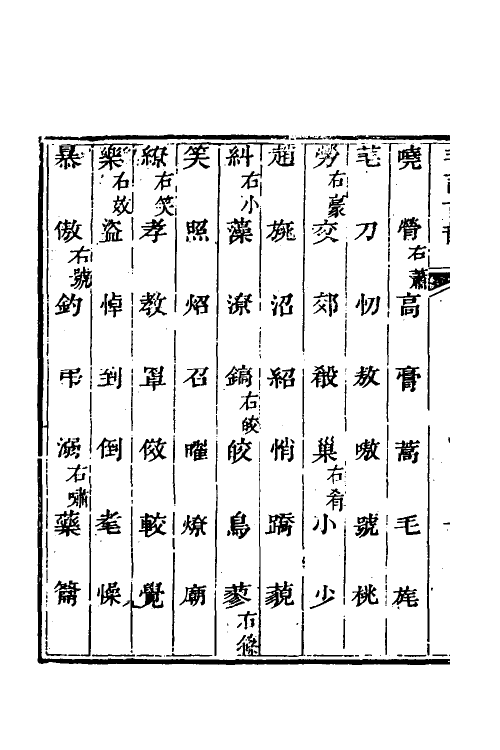 嘵 膋右蕭 高 膏 蒿 毛 旄
芼 刀 忉 敖 嗷 號 桃
勞右豪 交 郊 殽 巢右肴 小 少
趙 旐 沼 紹 悄 蹻 藐
糾右小 藻 潦 鎬右皓 皎 鳥 蓼右篠
笑 照 炤 召 曜 燎 廟
繚右笑 孝 教 罩 傚 較 覺
樂右效 盜 悼 到 倒 耄 懆
暴 傲右號 釣 弔 溺右嘯 藥 籥